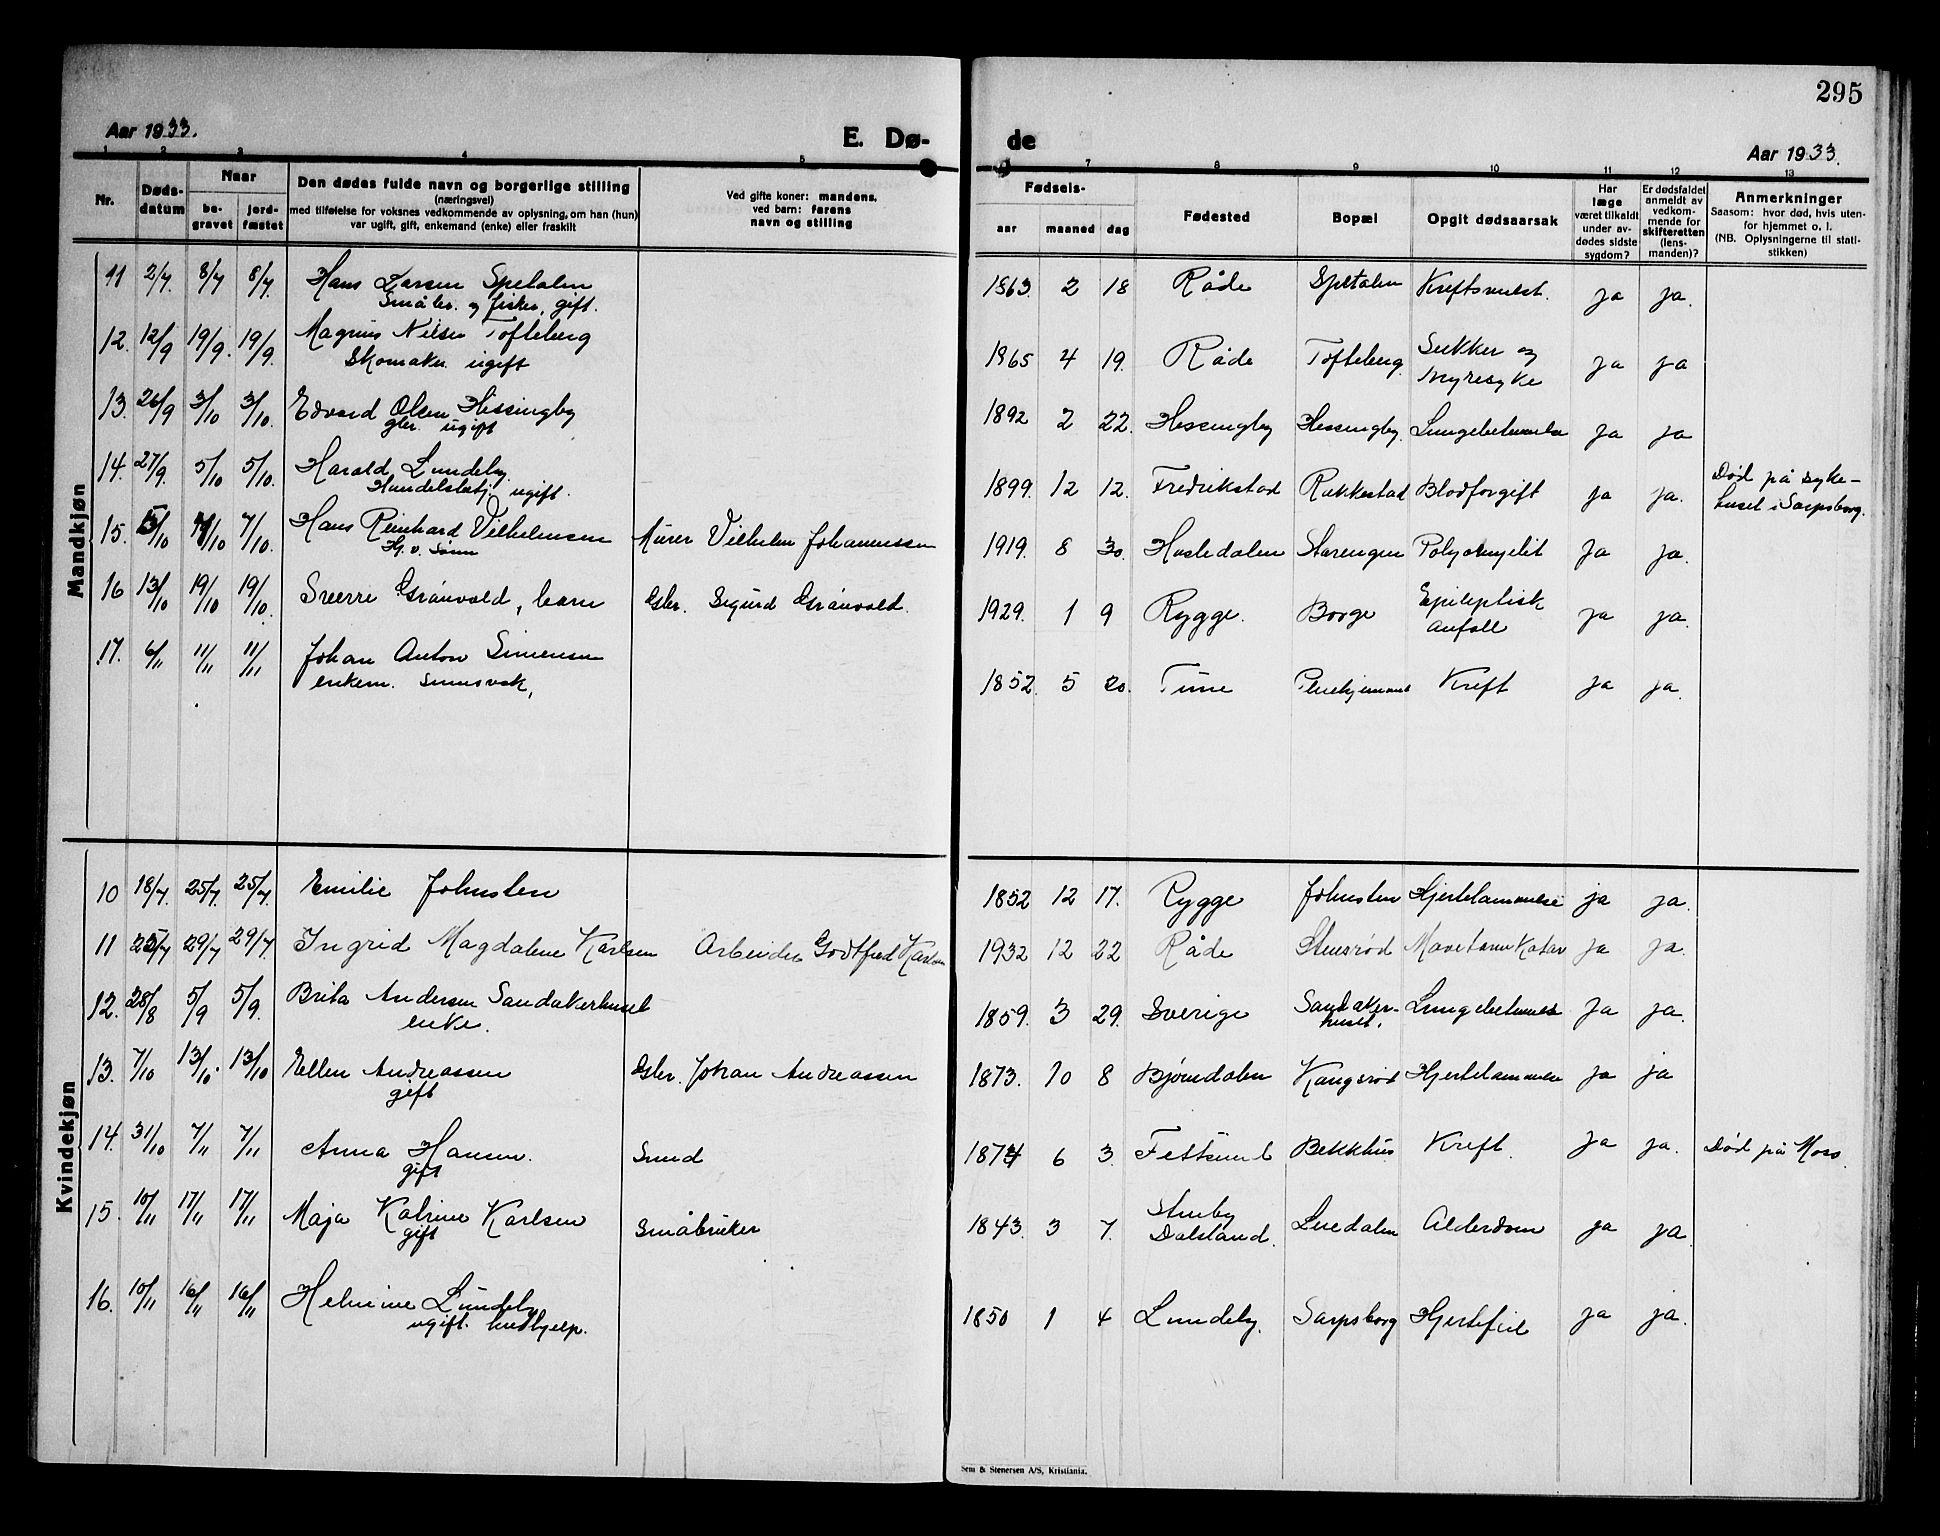 295
Aar 1933.
E. Dø-
de
Aar 1933.
1 2 3 4 5 6 7 8 9 10 11 12 13
Nr.
Døds-
datum
Naar
be-
gravet
jord-
fæstet
Den dødes fulde navn og borgerlige stilling
(næringsvei)
med tilføielse for voksnes vedkommende av oplysning, om han (hun)
var ugift, gift, enkemand (enke) eller fraskilt
Ved gifte koner: mandens,
ved barn: farens
navn og stilling
Fødsels-
aar maaned dag
Fødested
Bopæl
Opgit dødsaarsak
Har
læge
været tilkaldt
under av-
dødes sidste
sygdom?
Er dødsfaldet
anmeldt av
vedkom-
mende for
skifteretten
(lens-
manden)?
Anmerkninger
Saasom: hvor død, hvis uten-
for hjemmet o. l.
(NB. Oplysningerne til stati-
stikken)
Mandkjøn
11 2/7. 8/7 8/7. Hans Larsen Spetalen 1863. 2 18 Råde Spetalen Kreftsvulst. ja ja.
Småbr. og fisker, gift.
12. 12/9 19/9. 19/9. Magnus Nilsen Tofteberg 1865 4 19. Råde Tofteberg. Sukker og ja ja
Skomaker ugift nyresyke
13. 26/9 3/10 3/10. Edvard Olsen Hissingby 1892 2 22. Hissingby Hissingby. Lungebetennelse ja ja
gbr. ugift
14. 27/9. 5/10 5/10. Harald Lundeby. 1899. 12 12. Fredrikstad Rakkestad Blodforgift ja ja. Død på syke-
Handelsbetj. ugift. huset i Sarpsborg.
15. 5/10 7/10 7/10. Hans Reinhard Vilhelmsen Murer Vilhelm Johannessen 1919. 8 30. Husledalen Starengen Polyomyelit ja ja.
Hj.v. Sønn
16 13/10 19/10 19/10. Sverre Grånvold, barn Gbr. Sigurd Grånvold. 1929. 1 9 Rygge. Borge Epileptisk ja ja.
anfall
17. 6/11 11/11 11/11 Johan Anton Simensen 1852. 5 20. Tune Pleiehjemmet Kreft ja ja.
enkem. sinnsvak,
Kvindekjøn
10 18/7 25/7. 25/7. Emilie Johnsten 1852 12 17. Rygge Johnsten Hjertelammelse ja ja.
11 25/7 29/7 29/7. Ingrid Magdalene Karlsen Arbeider Godtfred Karlsen 1932 12 22 Råde Stensrød Mavetarm Katar ja ja.
12. 28/8 5/9 5/9. Brita Andersen Sandakerhuset 1859. 3 29. Sverige Sandaker- Lungebetennelse ja ja.
enke. huset.
13. 7/10 13/10. 13/10 Ellen Andreassen Gbr. Johan Andreassen 1873. 10 8 Bjørndalen Kangsrød Hjertelammelse ja ja
gift
14. 31/10 7/11 7/11 Anna Hansen. Smed 1874 6 3. Fettsund Bekkhus Kreft. ja ja. Død på Moss.
gift
15. 10/11 17/11 17/11 Maja Katrine Karlsen Småbruker 1843. 3 7. Dalsland. Luedalen Alderdom ja ja.
gift
16. 10/11 16/11 16/11 Helmine Lundeby 1850 1 4 Lundeby. Sarpsborg Hjertefeil ja ja.
ugift. hushjelp.
Sem & Stenersen A/S, Kristiania.